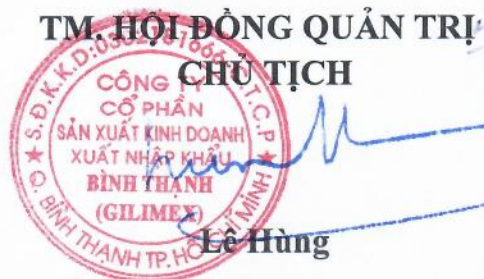 TM. HỘI ĐỒNG QUẢN TRỊ
CHỦ TỊCH
CÔNG TY
CỔ PHẦN
SẢN XUẤT KINH DOANH
XUẤT NHẬP KHẨU
BÌNH THẠNH
(GILIMEX)
Q. BÌNH THẠNH TP. HỒ CHÍ MINH
Lê Hùng